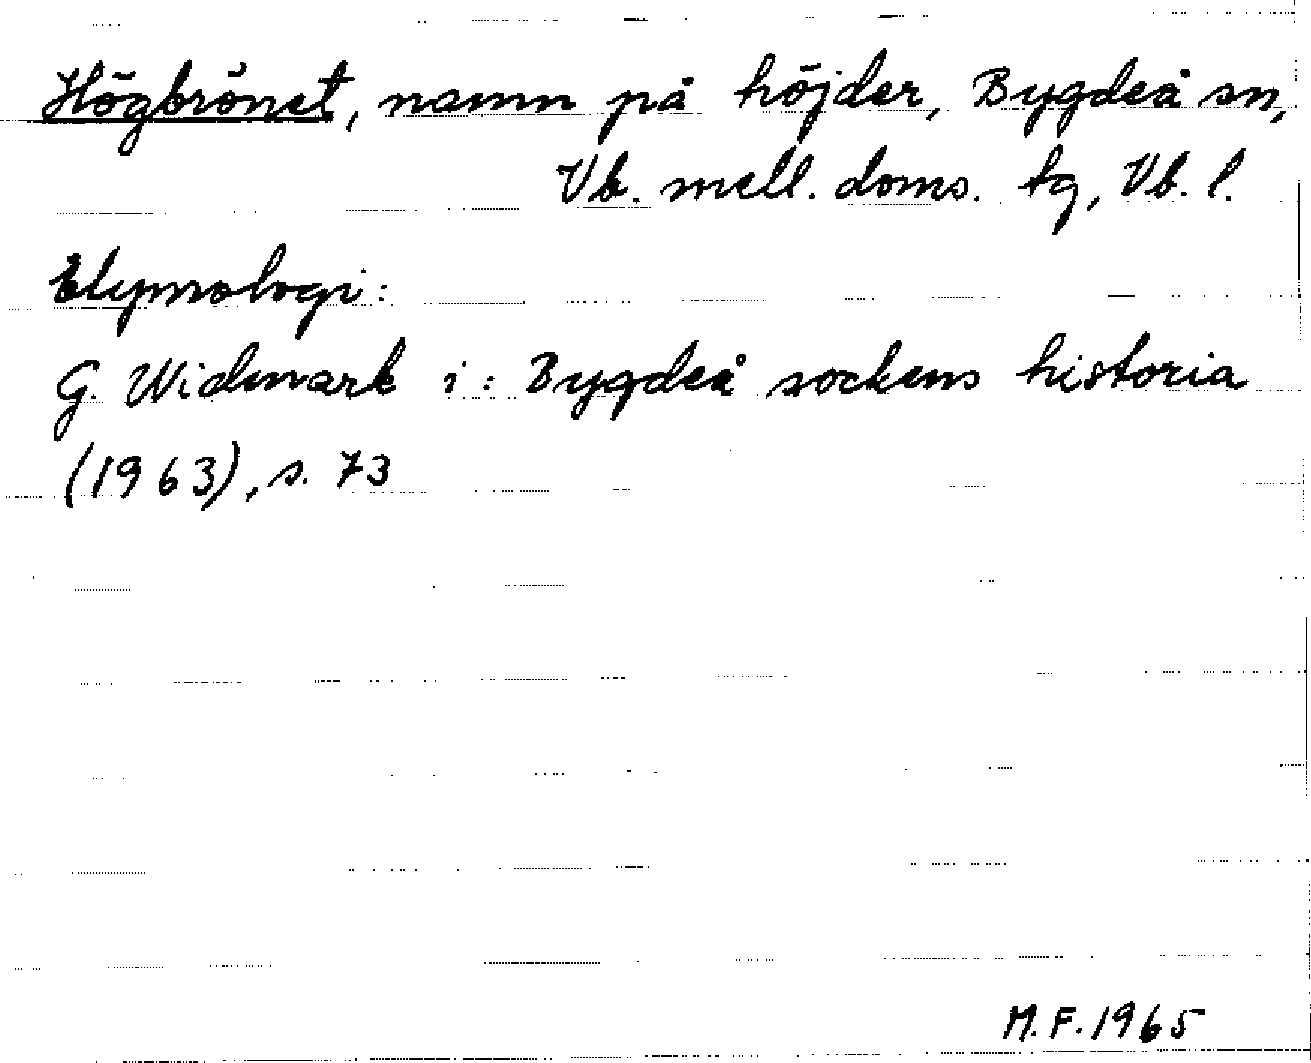 Högbrönet, namn på höjder, Bygdeå sn,
Vb. mell. doms. tg, Vb. l.
Etymologi:
G. Widmark i: Bygdeå sockens historia
(1963), s. 73
M.F. 1965